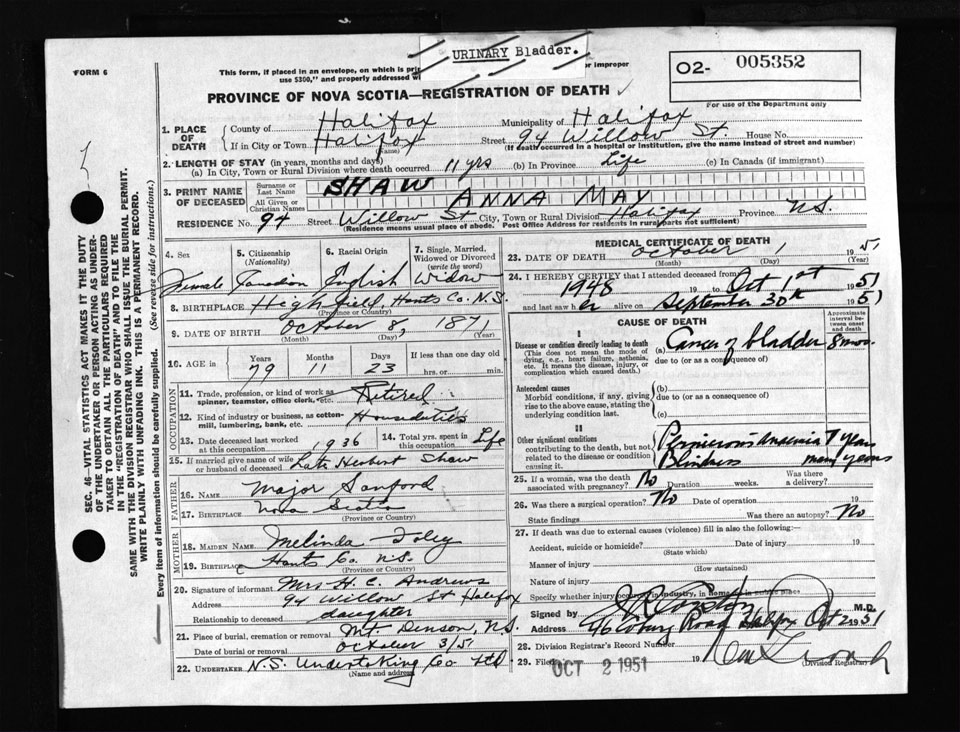 URINARY Bladder.
FORM 6
This form, if placed in an envelope, on which is pri
or improper
use $300," and properly addressed w
O2- 005352
For use of the Department only
PROVINCE OF NOVA SCOTIA—REGISTRATION OF DEATH
1. PLACE OF DEATH
County of Halifax Municipality of Halifax
If in City or Town Halifax Street 94 Willow St. House No.
(Name) (If death occurred in a hospital or institution, give the name instead of street and number)
2. LENGTH OF STAY (in years, months and days)
(a) In City, Town or Rural Division where death occurred 11 yrs (b) In Province Life (c) In Canada (if immigrant)
3. PRINT NAME OF DECEASED
Surname or Last Name SHAW
All Given or Christian Names ANNA MAY
RESIDENCE No. 94 Street Willow St City, Town or Rural Division Halifax Province N.S.
(Residence means usual place of abode. Post Office Address for residents in rural parts not sufficient)
4. Sex Female
5. Citizenship (Nationality) Canadian
6. Racial Origin English
7. Single, Married, Widowed or Divorced (write the word) Widow
8. BIRTHPLACE Highfield, Hants Co. N.S.
(Province or Country)
9. DATE OF BIRTH October 8, 1871
(Month) (Day) (Year)
10. AGE in Years 79 Months 11 Days 23 If less than one day old hrs. or min.
OCCUPATION
11. Trade, profession, or kind of work as spinner, teamster, office clerk, etc. Retired
12. Kind of industry or business, as cotton-mill, lumbering, bank, etc. Housduties
13. Date deceased last worked at this occupation 1936
14. Total yrs. spent in this occupation Life
15. If married give name of wife or husband of deceased Late Herbert Shaw
FATHER
16. NAME Major Sanford
17. BIRTHPLACE Nova Scotia
(Province or Country)
MOTHER
18. MAIDEN NAME Melinda Foley
19. BIRTHPLACE Hants Co. N.S.
(Province or Country)
20. Signature of informant Mrs H. C. Andrews
Address 94 Willow St Halifax
Relationship to deceased daughter
21. Place of burial, cremation or removal Mt. Denson, N.S.
Date of burial or removal October 3/51
22. UNDERTAKER N.S. Undertaking Co Ltd
(Name and address)
MEDICAL CERTIFICATE OF DEATH
23. DATE OF DEATH October 1 1951
(Month) (Day) (Year)
24. I HEREBY CERTIFY that I attended deceased from
1948 to Oct 1st 1951
and last saw her alive on September 30th 1951
CAUSE OF DEATH
Approximate interval between onset and death
I
Disease or condition directly leading to death
(This does not mean the mode of dying, e.g., heart failure, asthenia, etc. It means the disease, injury, or complication which caused death.)
(a) Cancer of bladder 8 mos.
due to (or as a consequence of)
Antecedent causes
Morbid conditions, if any, giving rise to the above cause, stating the underlying condition last.
(b)
due to (or as a consequence of)
(c)
II
Other significant conditions contributing to the death, but not related to the disease or condition causing it.
Pernicious Anaemia 7 years
Blindness many years
25. If a woman, was the death associated with pregnancy? No Duration weeks. Was there a delivery?
26. Was there a surgical operation? No Date of operation 19
State findings Was there an autopsy? No
27. If death was due to external causes (violence) fill in also the following:—
Accident, suicide or homicide? Date of injury 19
(State which)
Manner of injury
(How sustained)
Nature of injury
Specify whether injury occurred in industry, in home, or in public place
Signed by M.D.
Address 46 Coburg Road Halifax Oct 2 1951
28. Division Registrar's Record Number
29. Filed OCT 2 1951 19
(Division Registrar)
SEC. 46—VITAL STATISTICS ACT MAKES IT THE DUTY
OF THE UNDERTAKER OR PERSON ACTING AS UNDER-
TAKER TO OBTAIN ALL THE PARTICULARS REQUIRED
IN THE "REGISTRATION OF DEATH" AND TO FILE THE
SAME WITH THE DIVISION REGISTRAR WHO SHALL ISSUE THE BURIAL PERMIT.
WRITE PLAINLY WITH UNFADING INK. THIS IS A PERMANENT RECORD.
Every item of information should be carefully supplied. (See reverse side for instructions.)